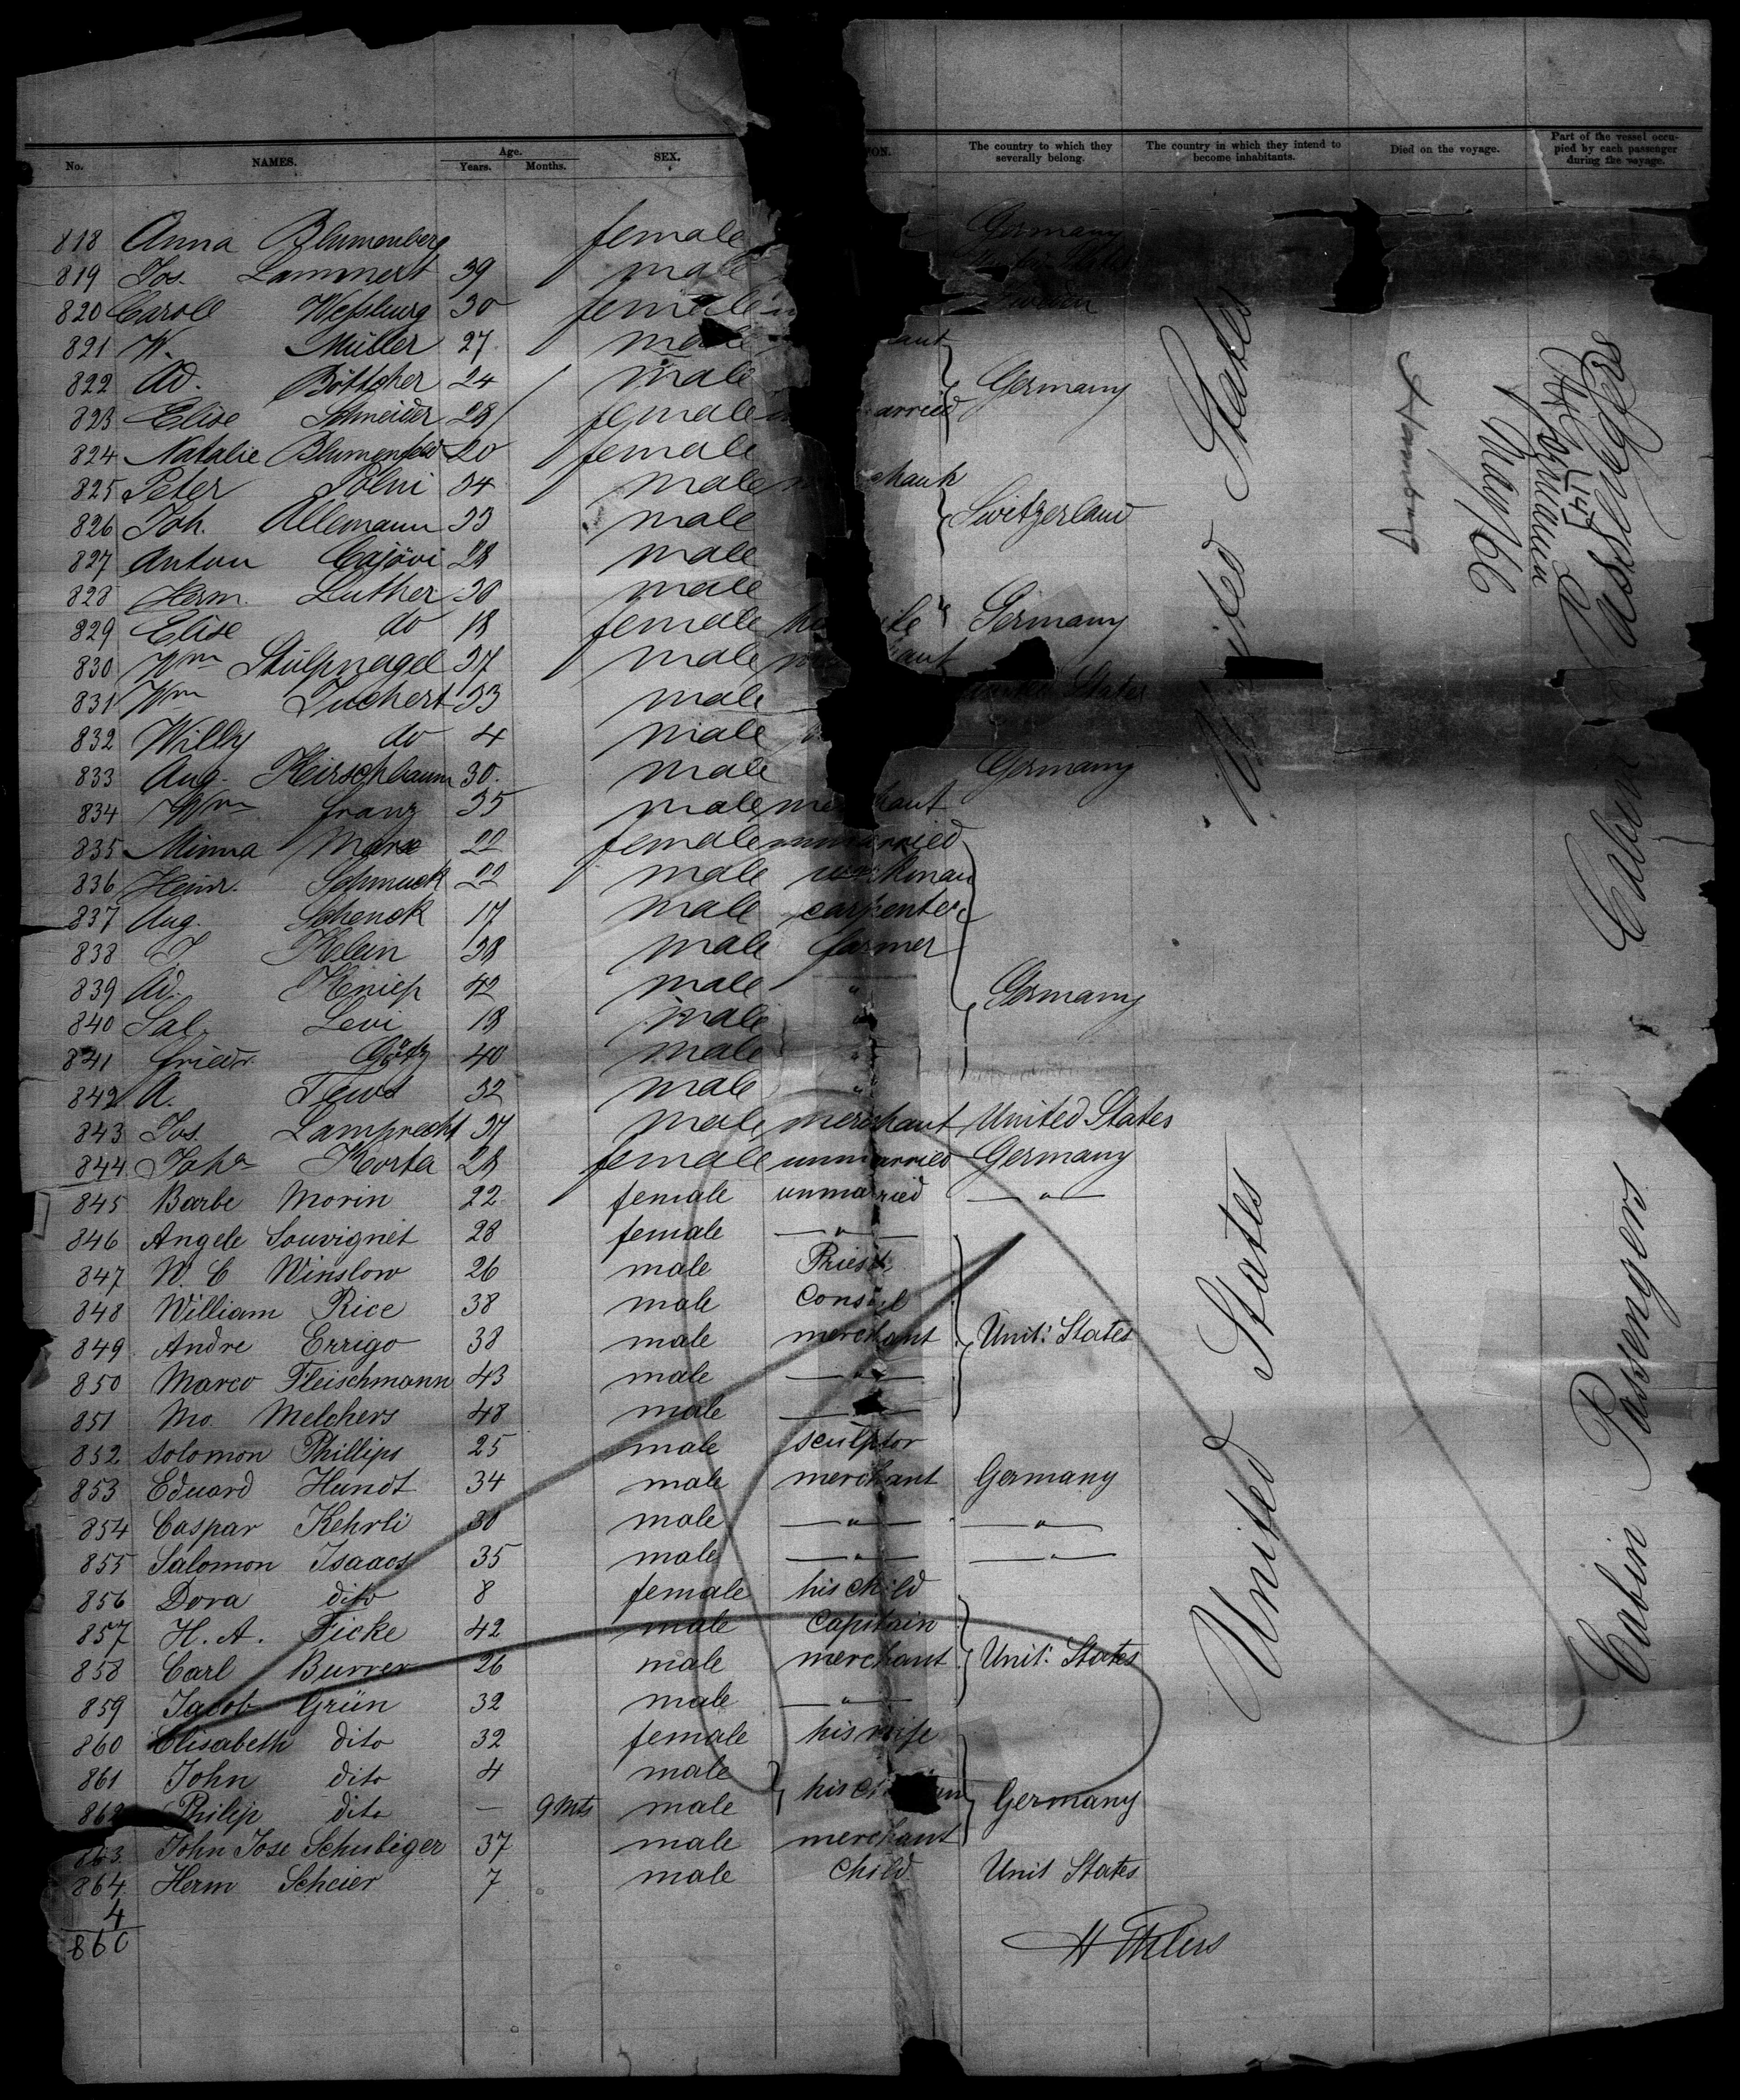 No. NAMES. Age. Years. Months. SEX. ION. The country to which they severally belong. The country in which they intend to become inhabitants. Died on the voyage. Part of the vessel occupied by each passenger during the voyage.
818 Anna Blumenberg female Germany
819 Jos. Lammert 39 male
820 Caroll 30 female Sweden
821 W. Müller 27 male
822 Ad. Böttcher 24 male Germany
823 Elise Schneider 28 female arried
824 Natalie Blumenfeld 20 female
825 Peter 34 male
826 Joh. Allemann 33 male Switzerland
827 Anton 28 male
828 Herm. Luther 30 male
829 Elise do 18 female Germany
830 Wm Stülpnagel 37 male
831 Wm Luchert 33 male United States
832 Willy do 4 male
833 Aug. Kirschbaum 30. male Germany
834 Wm Franz 35 male
835 Minna Marx 22 female unmarried
836 Heinr. Schmuck 22 male workman
837 Aug. Schenck 17 male carpenter
838 J Klein 38 male farmer
839 Ad. Kniep 42 male " Germany
840 Sal. Levi 18 male "
841 Friedr. Götz 40 male "
842 A. Tews 32 male "
843 Jos. Lamprecht 37 male merchant United States
844 Joha Korta 28 female unmarried Germany
845 Barbe Morin 22 female unmarried — " —
846 Angele Souvignet 28 female — " —
847 W. C Winslow 26 male Priest
848 William Rice 38 male Consul
849 Andre Errigo 38 male merchant Unit: States
850 Marco Fleischmann 43 male — " —
851 Mo. Melchers 48 male — " —
852 Solomon Phillips 25 male sculptor
853 Eduard Hundt 34 male merchant Germany
854 Caspar Kehrli 30 male — " — — " —
855 Salomon Isaacs 35 male — " — — " —
856 Dora dito 8 female his child
857 H. A. Ficke 42 male Capitain
858 Carl Burrer 26 male merchant Unit: States
859 Jacob Grün 32 male — " —
860 Elisabeth dito 32 female his wife
861 John dito 4 male
862 Philip dito — 9 Mts male his Germany
863 John Jose Schubiger 37 male merchant
864 Herm Scheier 7 male Child Unit States
4
860
H Ehlers
United States
United States
Hamburg
May/66
Germania
Passengers
Cabin
Cabin Passengers